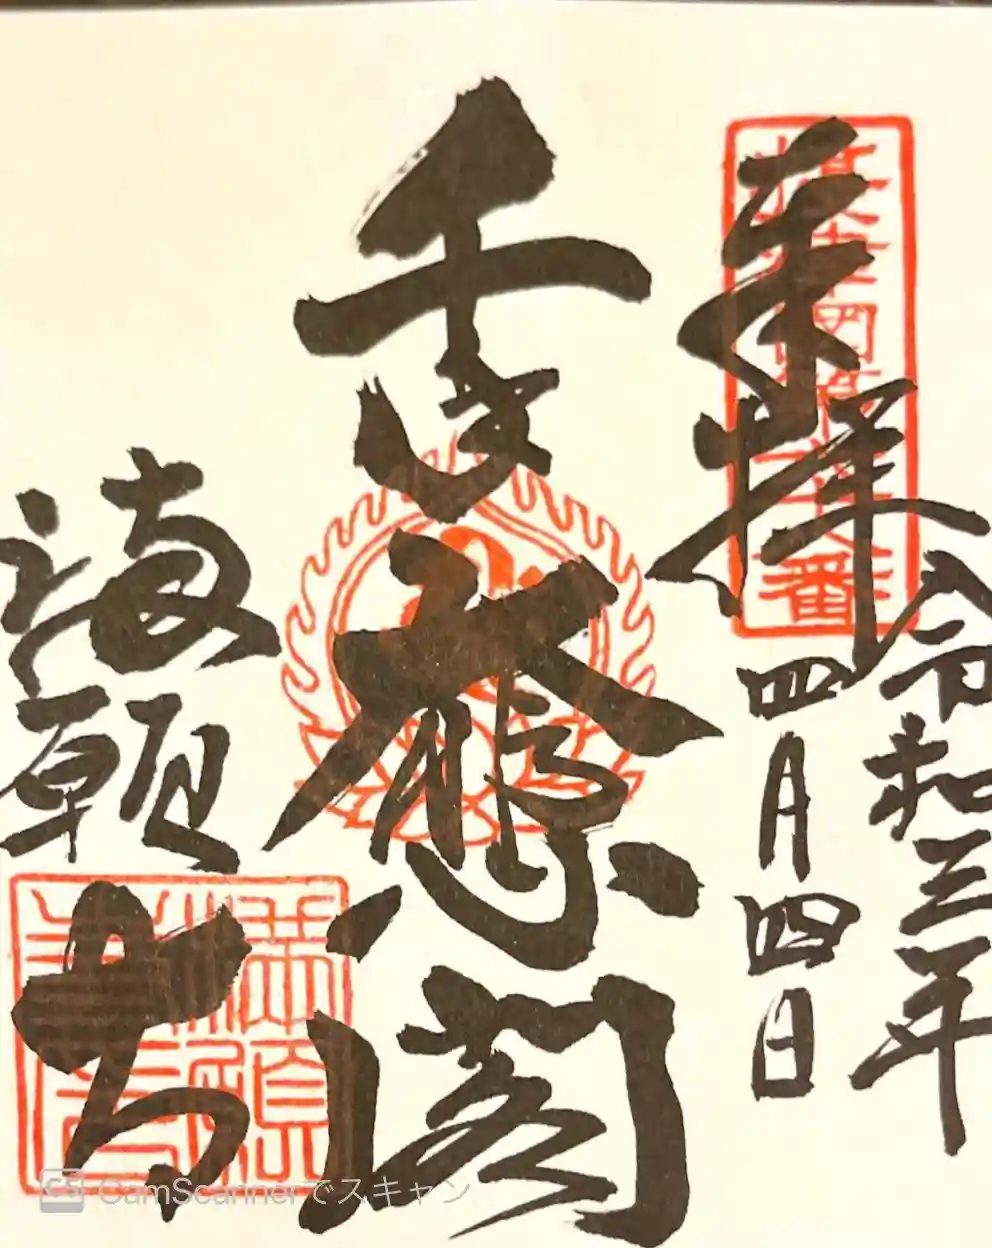 奉拝
令和三年
四月四日
千手大悲閣
満願寺
CamScannerでスキャン